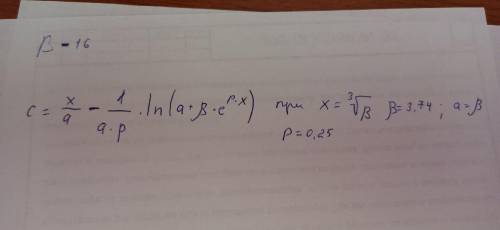 β - 16
c = x/a - 1/(a·p) · ln(a+β·e^(p·x)) при x = ∛β β=3.74 ; a=β
p=0,25